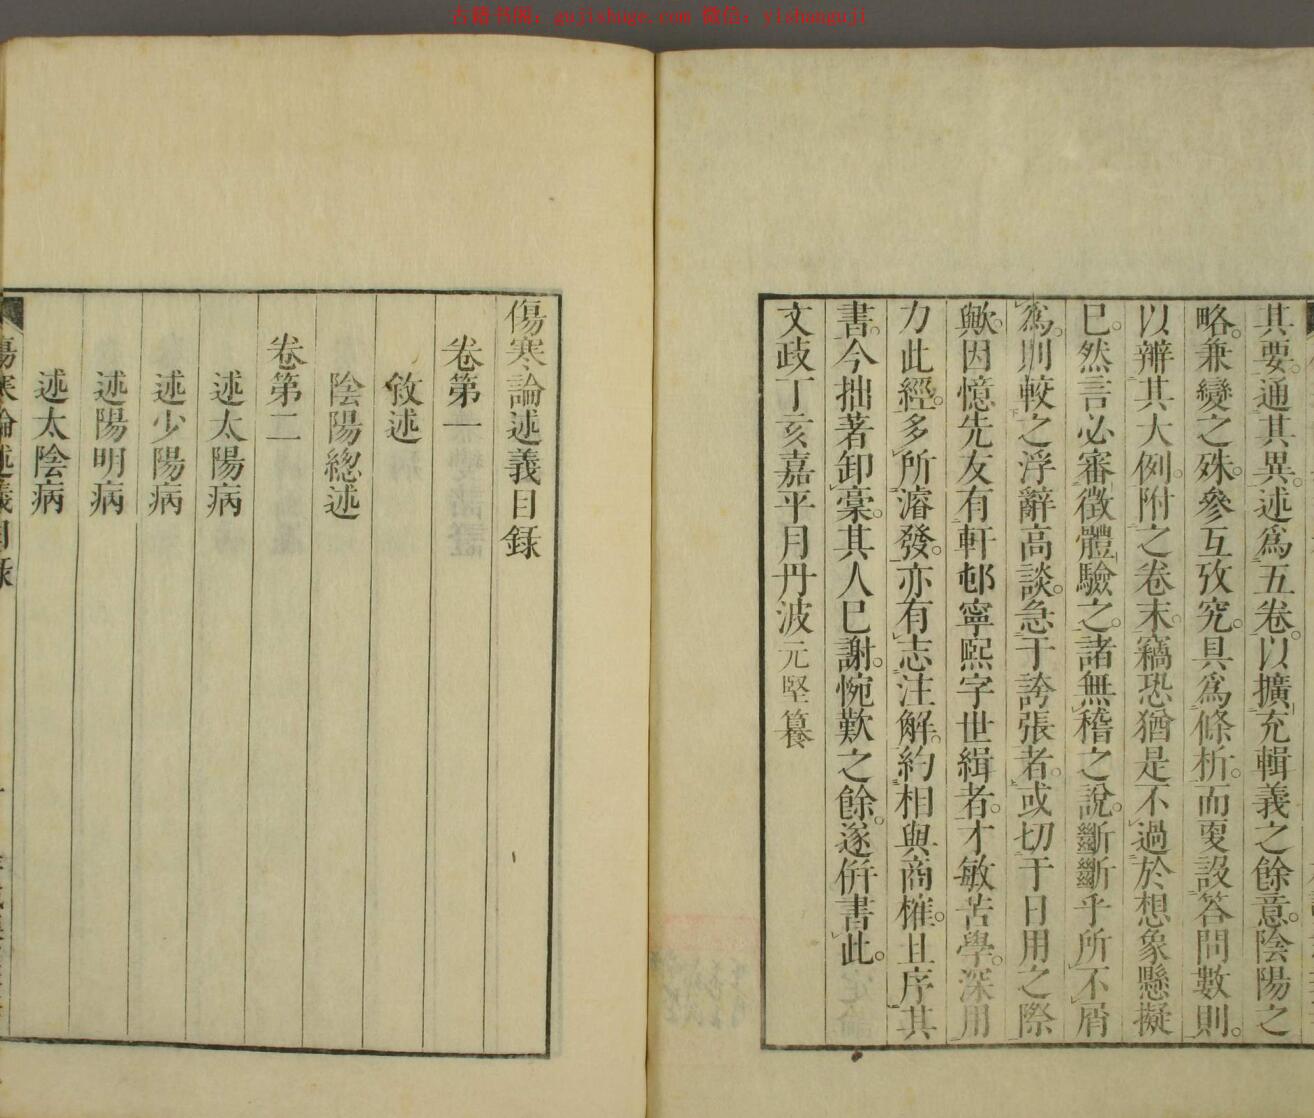 古籍书阁：gujishuge.com 微信：yishanguji
其要。通其異。述爲五卷。以擴充輯義之餘意。陰陽之
略。兼變之殊。參互攷究。具爲條析。而更設答問數則。
以辨其大例。附之卷末。竊恐猶是不過於想象懸擬
已。然言必審徵體驗之。諸無稽之說。斷斷乎所不屑
爲。則較之浮辭高談。急于誇張者。或切于日用之際
歟。因憶先友有軒邨寧熙字世緝者。才敏苦學。深用
力此經。多所濬發。亦有志注解。約相與商榷。且序其
書。今拙著卸稾。其人已謝。惋歎之餘。遂倂書此。
文政丁亥嘉平月丹波元堅纂
傷寒論述義目錄
卷第一
敘述
陰陽總述
卷第二
述太陽病
述少陽病
述陽明病
述太陰病
傷寒論述義目錄